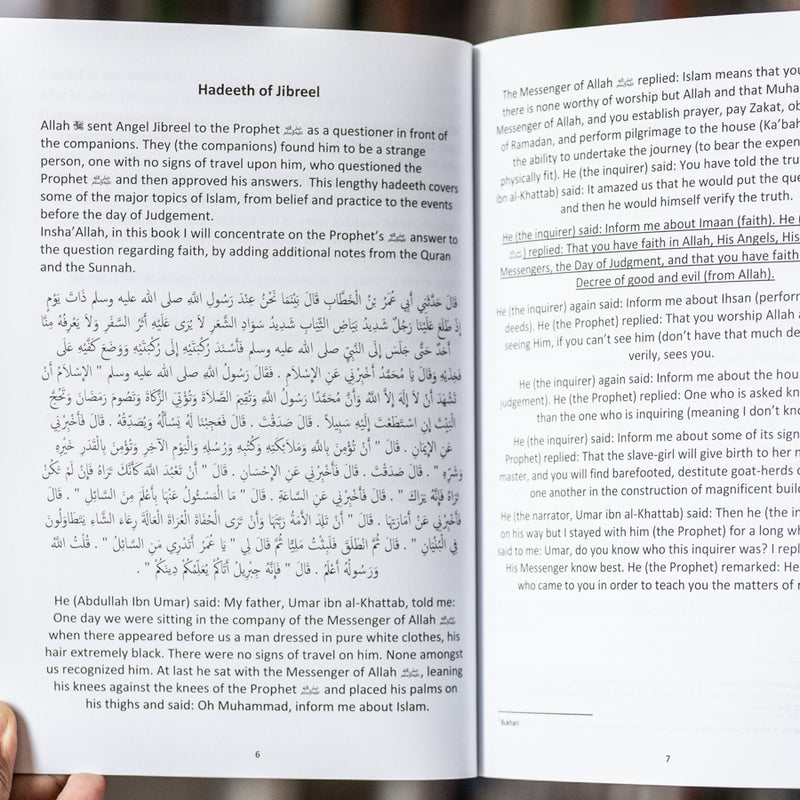 Hadeeth of Jibreel
Allah ﷻ sent Angel Jibreel to the Prophet ﷺ as a questioner in front of
the companions. They (the companions) found him to be a strange
person, one with no signs of travel upon him, who questioned the
Prophet ﷺ and then approved his answers. This lengthy hadeeth covers
some of the major topics of Islam, from belief and practice to the events
before the day of Judgement.
Insha’Allah, in this book I will concentrate on the Prophet’s ﷺ answer to
the question regarding faith, by adding additional notes from the Quran
and the Sunnah.
قَالَ حَدَّثَنِي أَبِي عُمَرُ بْنُ الْخَطَّابِ قَالَ بَيْنَمَا نَحْنُ عِنْدَ رَسُولِ اللَّهِ صلى الله عليه وسلم ذَاتَ يَوْمٍ
إِذْ طَلَعَ عَلَيْنَا رَجُلٌ شَدِيدُ بَيَاضِ الثِّيَابِ شَدِيدُ سَوَادِ الشَّعَرِ لاَ يُرَى عَلَيْهِ أَثَرُ السَّفَرِ وَلاَ يَعْرِفُهُ مِنَّا
أَحَدٌ حَتَّى جَلَسَ إِلَى النَّبِيِّ صلى الله عليه وسلم فَأَسْنَدَ رُكْبَتَيْهِ إِلَى رُكْبَتَيْهِ وَوَضَعَ كَفَّيْهِ عَلَى
فَخِذَيْهِ وَقَالَ يَا مُحَمَّدُ أَخْبِرْنِي عَنِ الإِسْلاَمِ . فَقَالَ رَسُولُ اللَّهِ صلى الله عليه وسلم " الإِسْلاَمُ أَنْ
تَشْهَدَ أَنْ لاَ إِلَهَ إِلاَّ اللَّهُ وَأَنَّ مُحَمَّدًا رَسُولُ اللَّهِ وَتُقِيمَ الصَّلاَةَ وَتُؤْتِيَ الزَّكَاةَ وَتَصُومَ رَمَضَانَ وَتَحُجَّ
الْبَيْتَ إِنِ اسْتَطَعْتَ إِلَيْهِ سَبِيلاً . قَالَ صَدَقْتَ . قَالَ فَعَجِبْنَا لَهُ يَسْأَلُهُ وَيُصَدِّقُهُ . قَالَ فَأَخْبِرْنِي
عَنِ الإِيمَانِ . قَالَ " أَنْ تُؤْمِنَ بِاللَّهِ وَمَلاَئِكَتِهِ وَكُتُبِهِ وَرُسُلِهِ وَالْيَوْمِ الآخِرِ وَتُؤْمِنَ بِالْقَدَرِ خَيْرِهِ
وَشَرِّهِ " . قَالَ صَدَقْتَ . قَالَ فَأَخْبِرْنِي عَنِ الإِحْسَانِ . قَالَ " أَنْ تَعْبُدَ اللَّهَ كَأَنَّكَ تَرَاهُ فَإِنْ لَمْ تَكُنْ
تَرَاهُ فَإِنَّهُ يَرَاكَ " . قَالَ فَأَخْبِرْنِي عَنِ السَّاعَةِ . قَالَ " مَا الْمَسْئُولُ عَنْهَا بِأَعْلَمَ مِنَ السَّائِلِ " . قَالَ
فَأَخْبِرْنِي عَنْ أَمَارَتِهَا . قَالَ " أَنْ تَلِدَ الأَمَةُ رَبَّتَهَا وَأَنْ تَرَى الْحُفَاةَ الْعُرَاةَ الْعَالَةَ رِعَاءَ الشَّاءِ يَتَطَاوَلُونَ
فِي الْبُنْيَانِ " . قَالَ ثُمَّ انْطَلَقَ فَلَبِثْتُ مَلِيًّا ثُمَّ قَالَ لِي " يَا عُمَرُ أَتَدْرِي مَنِ السَّائِلُ " . قُلْتُ اللَّهُ
وَرَسُولُهُ أَعْلَمُ . قَالَ " فَإِنَّهُ جِبْرِيلُ أَتَاكُمْ يُعَلِّمُكُمْ دِينَكُمْ " .
He (Abdullah Ibn Umar) said: My father, Umar ibn al-Khattab, told me:
One day we were sitting in the company of the Messenger of Allah ﷺ
when there appeared before us a man dressed in pure white clothes, his
hair extremely black. There were no signs of travel on him. None amongst
us recognized him. At last he sat with the Messenger of Allah ﷺ, leaning
his knees against the knees of the Prophet ﷺ and placed his palms on
his thighs and said: Oh Muhammad, inform me about Islam.
6
The Messenger of Allah ﷺ replied: Islam means that you
there is none worthy of worship but Allah and that Muha
Messenger of Allah, and you establish prayer, pay Zakat, ob
of Ramadan, and perform pilgrimage to the house (Ka‘bah
the ability to undertake the journey (to bear the expen
physically fit). He (the inquirer) said: You have told the tru
ibn al-Khattab) said: It amazed us that he would put the que
and then he would himself verify the truth.
He (the inquirer) said: Inform me about Imaan (faith). He (
ﷺ) replied: That you have faith in Allah, His Angels, His
Messengers, the Day of Judgment, and that you have faith
Decree of good and evil (from Allah).
He (the inquirer) again said: Inform me about Ihsan (perform
deeds). He (the Prophet) replied: That you worship Allah a
seeing Him, if you can’t see him (don’t have that much de
verily, sees you.
He (the inquirer) again said: Inform me about the hou
judgement). He (the Prophet) replied: One who is asked kn
than the one who is inquiring (meaning I don’t kno
He (the inquirer) said: Inform me about some of its sign
Prophet) replied: That the slave-girl will give birth to her m
master, and you will find barefooted, destitute goat-herds c
one another in the construction of magnificent build
He (the narrator, Umar ibn al-Khattab) said: Then he (the in
on his way but I stayed with him (the Prophet) for a long wh
said to me: Umar, do you know who this inquirer was? I repl
His Messenger know best. He (the Prophet) remarked: He
who came to you in order to teach you the matters of r
Bukhari
7